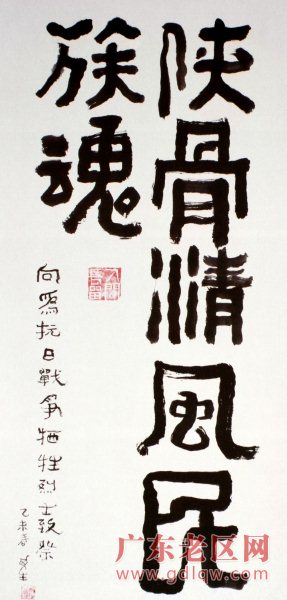 侠骨清风民
族魂
向为抗日战争牺牲烈士致祭
乙未春
广东老区网
www.gdlqw.com